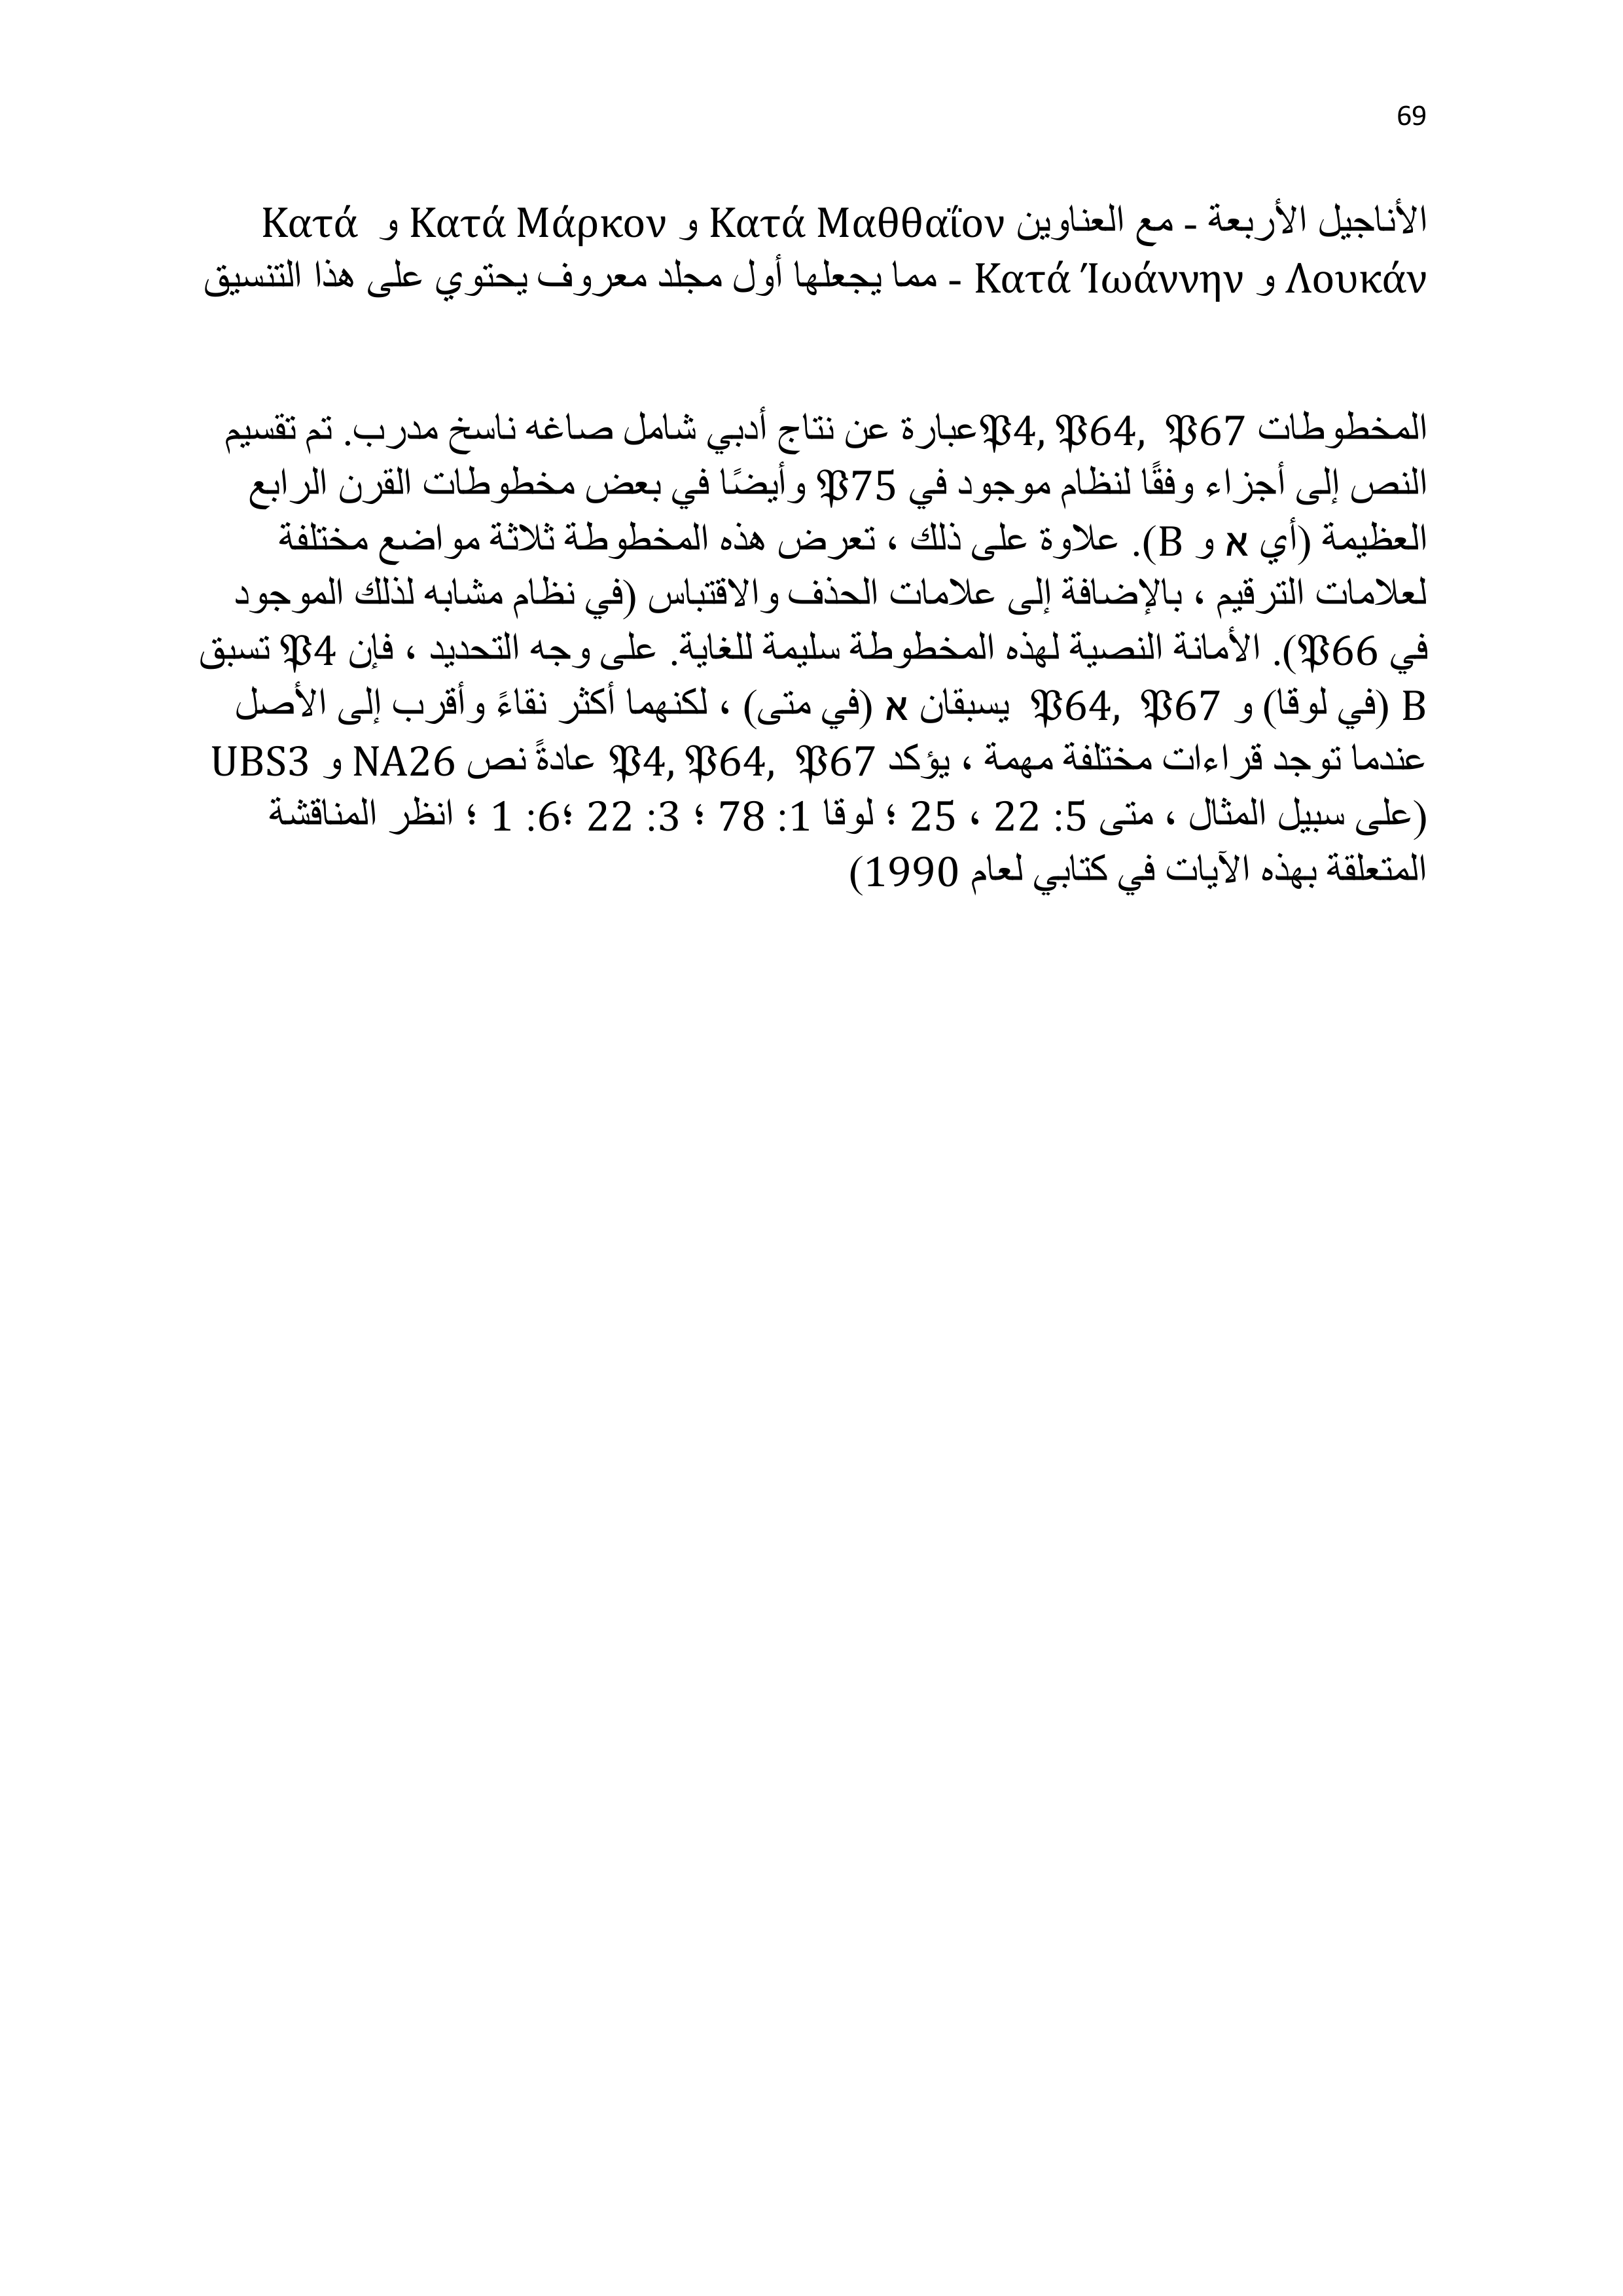 69
الأناجيل الأربعة - مع العناوين Κατά Μαθθαΐον و Κατά Μάρκον و Κατά
Λουκάν و Κατά Ίωάννην - مما يجعلها أول مجلد معروف يحتوي على هذا التنسيق
المخطوطات 𝔓4, 𝔓64, 𝔓67عبارة عن نتاج أدبي شامل صاغه ناسخ مدرب. تم تقسيم
النص إلى أجزاء وفقًا لنظام موجود في 𝔓75 وأيضًا في بعض مخطوطات القرن الرابع
العظيمة (أي א و B). علاوة على ذلك ، تعرض هذه المخطوطة ثلاثة مواضع مختلفة
لعلامات الترقيم ، بالإضافة إلى علامات الحذف والاقتباس (في نظام مشابه لذلك الموجود
في 𝔓66). الأمانة النصية لهذه المخطوطة سليمة للغاية. على وجه التحديد ، فإن 𝔓4 تسبق
B (في لوقا) و 𝔓64, 𝔓67 يسبقان א (في متى) ، لكنهما أكثر نقاءً وأقرب إلى الأصل
عندما توجد قراءات مختلفة مهمة ، يؤكد 𝔓4, 𝔓64, 𝔓67 عادةً نص NA26 و UBS3
(على سبيل المثال ، متى 5: 22 ، 25 ؛ لوقا 1: 78 ؛ 3: 22 ؛6: 1 ؛ انظر المناقشة
المتعلقة بهذه الآيات في كتابي لعام 1990)